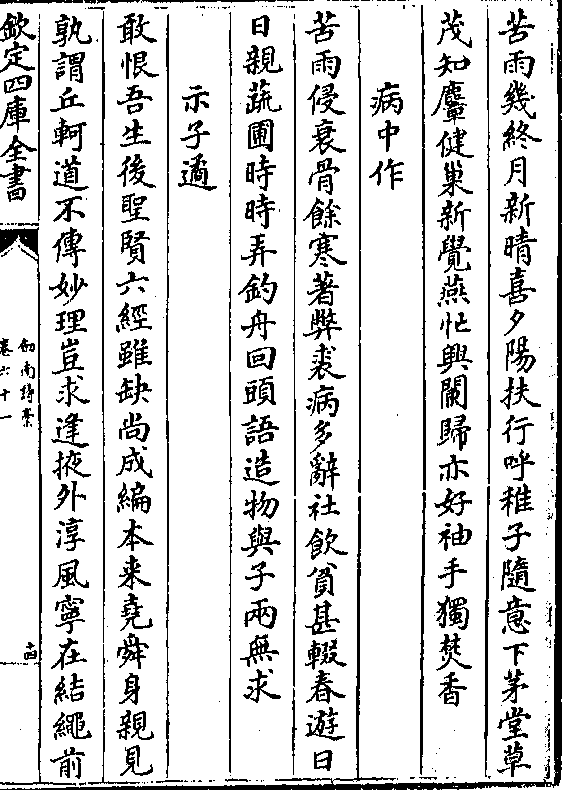 苦雨幾終月新晴喜夕陽扶行呼稚子隨意下茅堂草
茂知麞健巢新覺燕忙興闌歸亦好袖手獨焚香
病中作
苦雨侵衰骨餘寒著弊裘病多辭社飲貧甚輟春遊日
日親蔬圃時時弄釣舟回頭語造物與子兩無求
示子遹
敢恨吾生後聖賢六經雖缺尚成編本来堯舜身親見
孰謂丘軻道不傳妙理豈求逢掖外淳風寧在結繩前
欽定四庫全書
劍南詩槀
卷六十一
十四